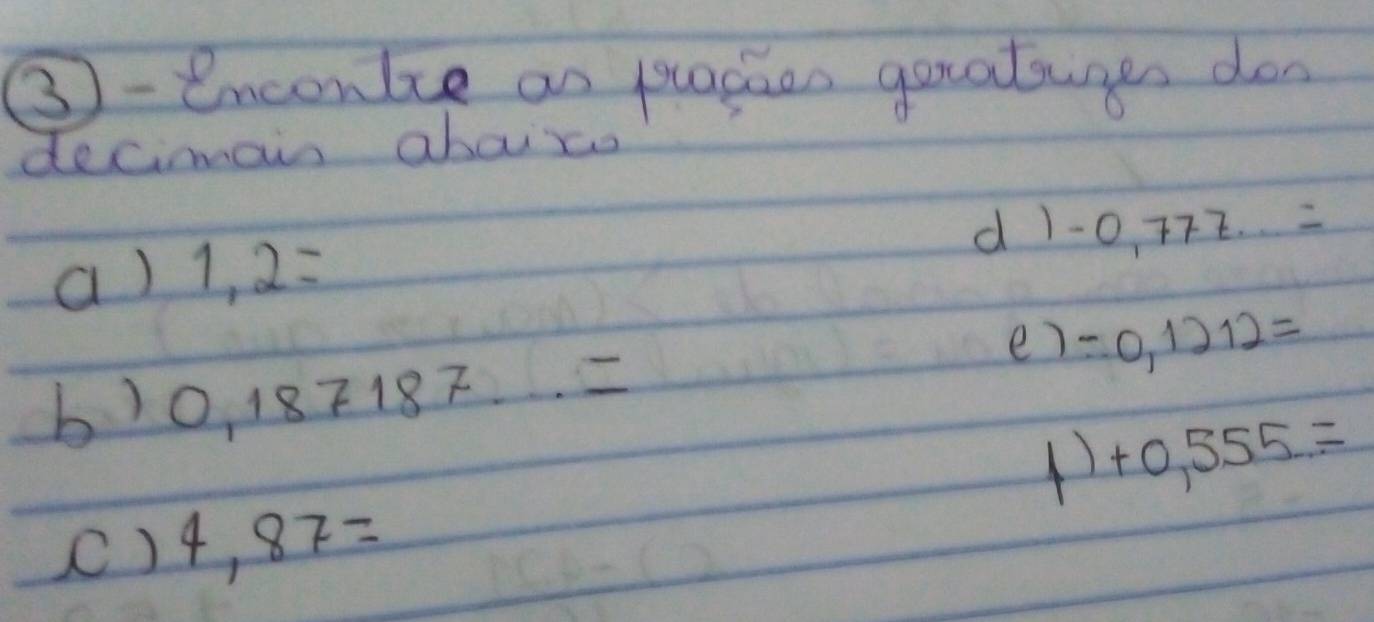 ③ - Encontre as frações geratrizes dos
decimais abaixo
a) 1,2 =
b) 0,187187... =
c) 4,87 =
d) -0,777... =
e) -0,1212 =
f) +0,555... =